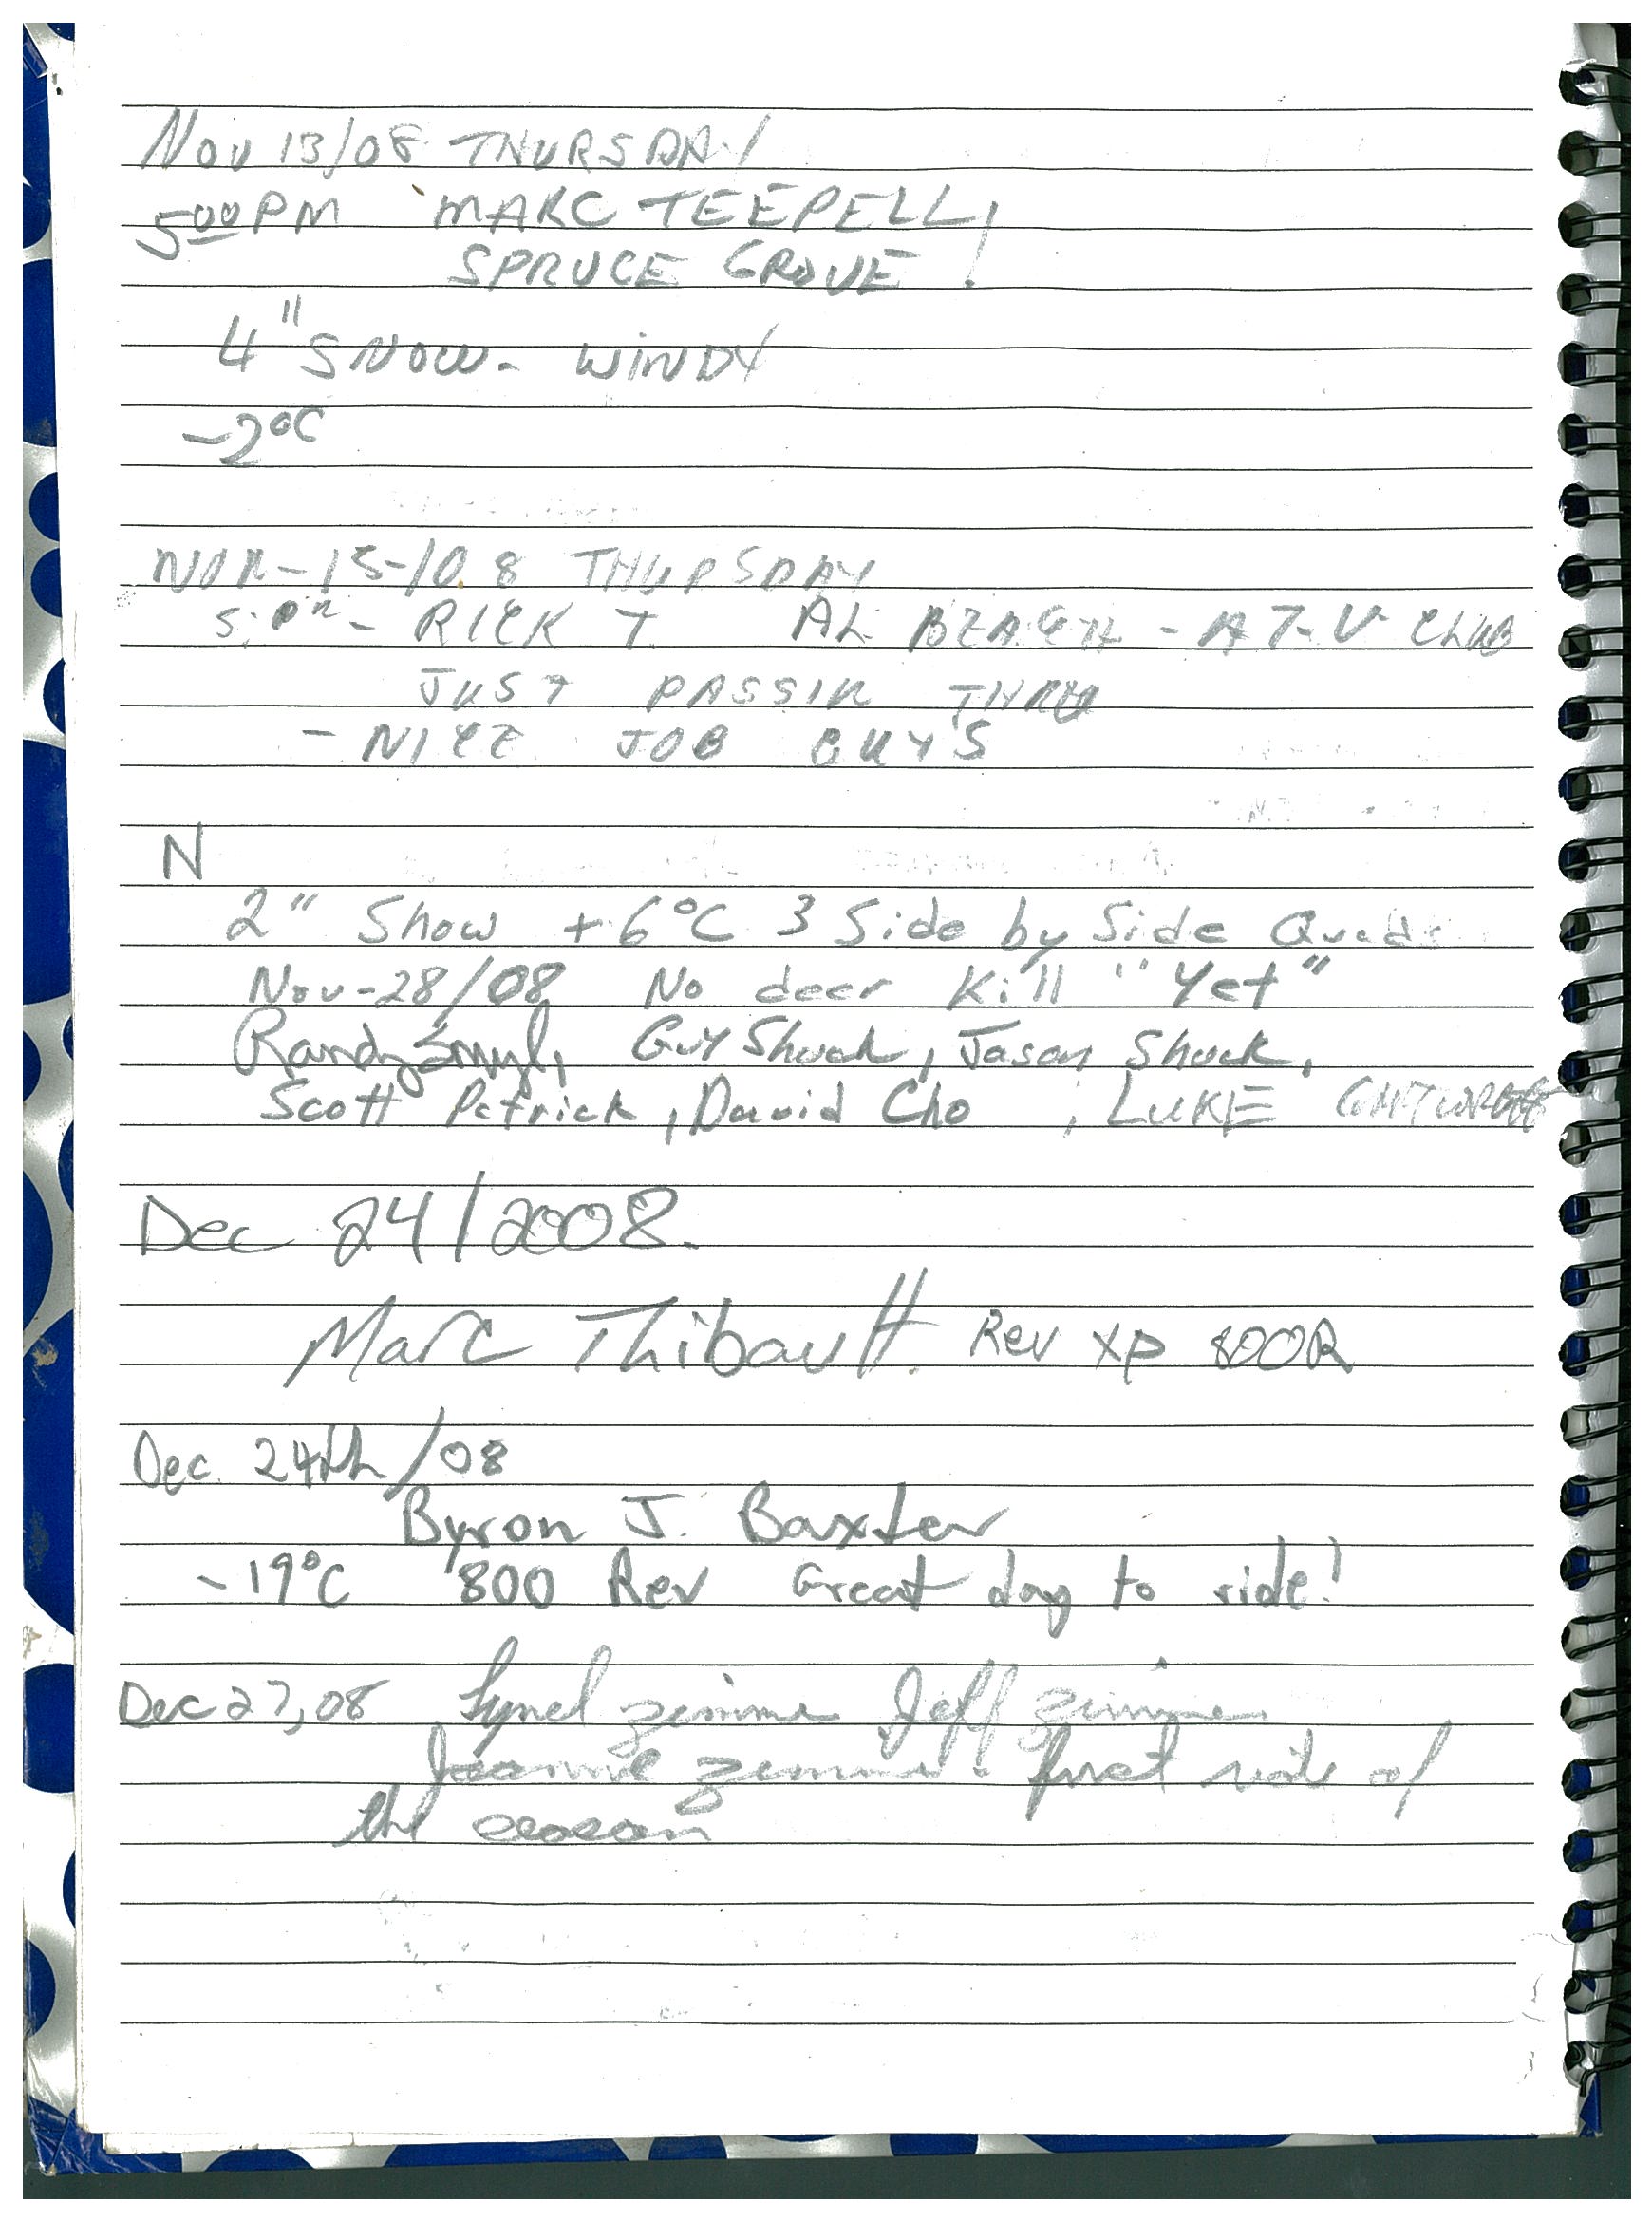 Nov 13/08 THURSDAY
500 PM MARC TEEPELL
SPRUCE GROVE!
4" SNOW - WINDY
-2°C
THURSDAY
RICK T AL BEACH - A.T.V CLUB
JUST PASSIN THRU
- NICE JOB GUYS
N
2" Snow +6°C 3 Side by Side Quads
Nov-28/08 No deer Kill "Yet"
Randy Guy Shuck, Jason Shuck,
Scott Patrick, David Cho, LUKE
Dec 24/2008.
Marc Thibault. Rev XP 800R
Dec. 24th/08
Byron J. Baxter
-19°C 800 Rev Great day to ride!
Dec 27, 08 Jeff
first ride of
the season